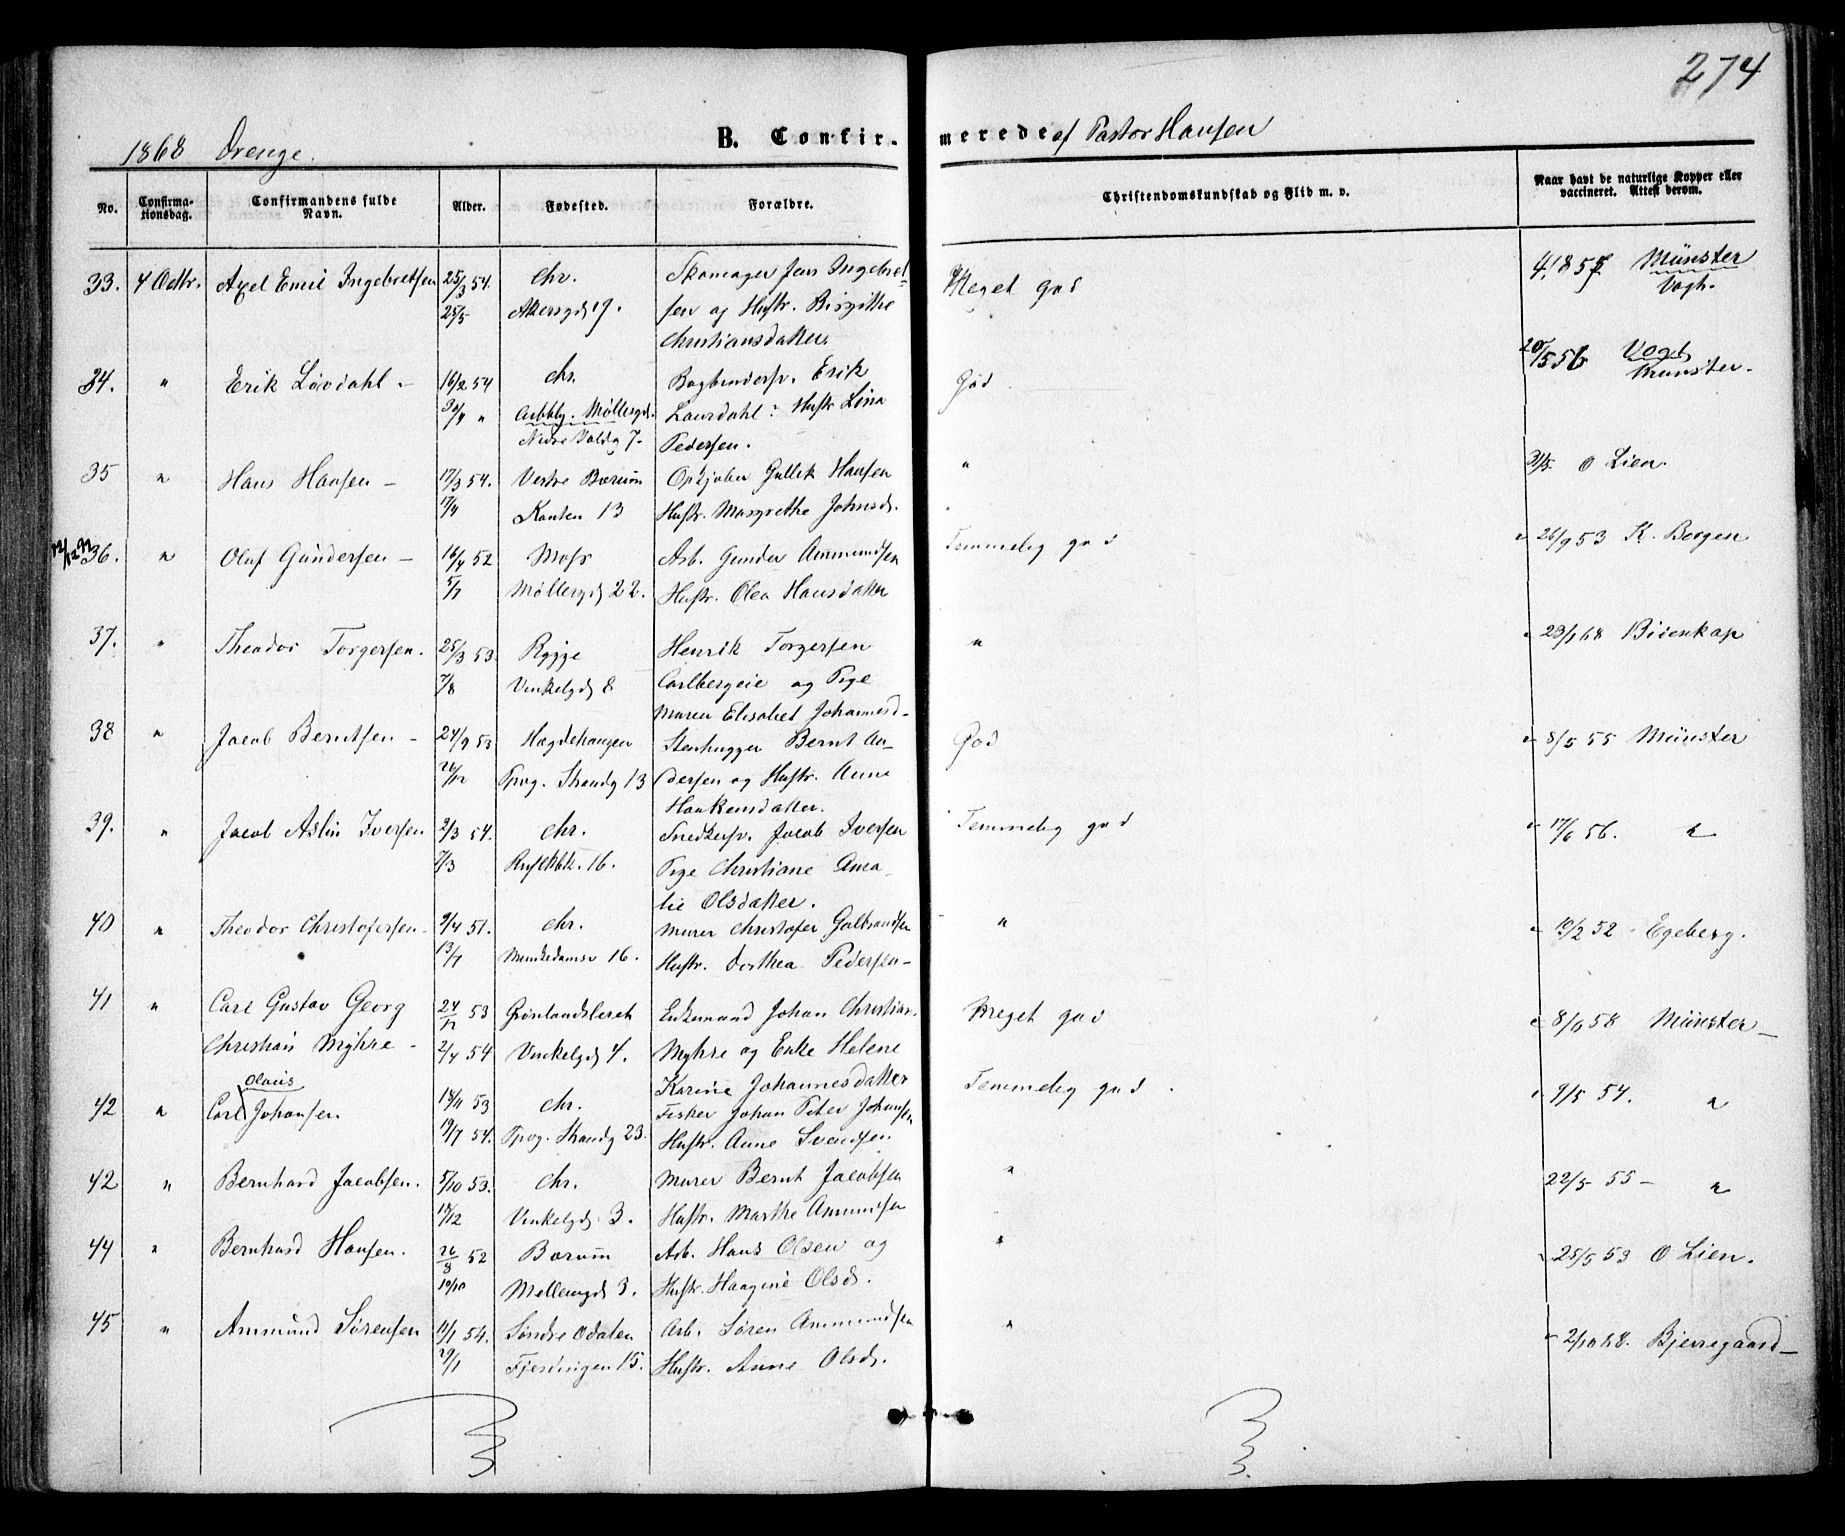 274
1868 Drenge.
B. Confirmerede af Pastor Hansen
No.
Confirma-
tionsdag.
Confirmandens fulde
Navn.
Alder.
Fødested.
Forældre.
Christendomskundskab og Flid m. v.
Naar havt de naturlige Kopper eller
vaccineret. Attest derom.
33. 4 Octbr. Axel Emil Ingebretsen 25/3 54. Chr. Skomager Jens Ingebret- Meget god Münster
25/5 Akersgd 17. sen og Hustr. Birgithe Vogt.
Christiansdatter.
34. " Erik Løvdahl - 16/2 54 Chr. Bogbindersv. Erik God 20/5 56 Vogt
30/4 " Møllergd. Laurdahl: Hustr. Lina Münster.
Nedre Voldg 7. Pedersen.
35 " Hans Hansen - 17/3 54. Vestre Bærum Gullik Hansen " 31/5 O Lien.
17/4 Kanten 13 Hustr. Margrethe Johnsd.
36. " Oluf Gundersen - 16/4 52 Moss Arb. Gunder Ammundsen Temmelig god 26/9 53 K. Borgen
5/7 Møllergd 22. Hustr. Olea Hansdatter
37. " Theodor Torgersen. 25/3 53. Rygge Henrik Torgersen " Birenkap
7/8 Vinkelgd 8 Carlbergeie og Pige
Maren Elisabet Johannesd-
38 " Jacob Berntsen - 24/9 53 Hægdehaugen Stenhugger Bernt An- God 8/5 55 Münster
26/12 Tpog. Strandg 13 dersen og Hustr. Anne
Haakensdatter.
39. " Jacob Aslin Iversen 2/3 54. Chr. Snedkersv. Jacob Iversen Temmelig god 17/6 56. "
7/3 16. Pige Christiane Ama-
lie Olsdatter.
40 " Theodor Christofersen - 9/4 51. Chr. Murer Christofer Gulbrandsen " 19/2 52 Egeberg.
13/7 Munkedamsv 16. Hustr. Dorthea Pedersen -
41 " Carl Gustav Georg 24/12 53 Grønlandsleret Enkemand Johan Christian Meget god 8/9 58 Münster -
Christian Myhre - 2/4 54 Vinkelgd 4. Myhre og Enke Helene
Karine Johannesdatter
42 " Carl Olaus Johansen. 18/11 53 Chr. Fisker Johan Peter Johansen Temmelig god. 9/5 54. "
19/7 54. Tpog. Strandg 23. Hustr. Anne Svendsen
42 " Bernhard Jacobsen. 5/10 53. Chr. Murer Bernt Jacobsen " 22/5 55 - "
18/12 Vinkelgd. 3. Hustr. Marthe Amundsen
44 " Bernhard Hansen. 26/8 52 Bærum Arb. Hans Olsen og " 25/5 53 O Lien.
10/10 Mellemgd 3. Hustr. Haagine Olsd.
45 " Ammund Sørensen 11/1 54. Søndre Odalen Arb. Søren Ammundsen " 2/10 68. Bjerregaard -
29/1 Fjerdingen 15. Hustr. Anne Olsd.